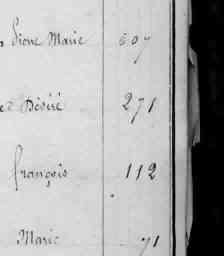 Marie 607
Désiré 271
françois 112
Marie 71